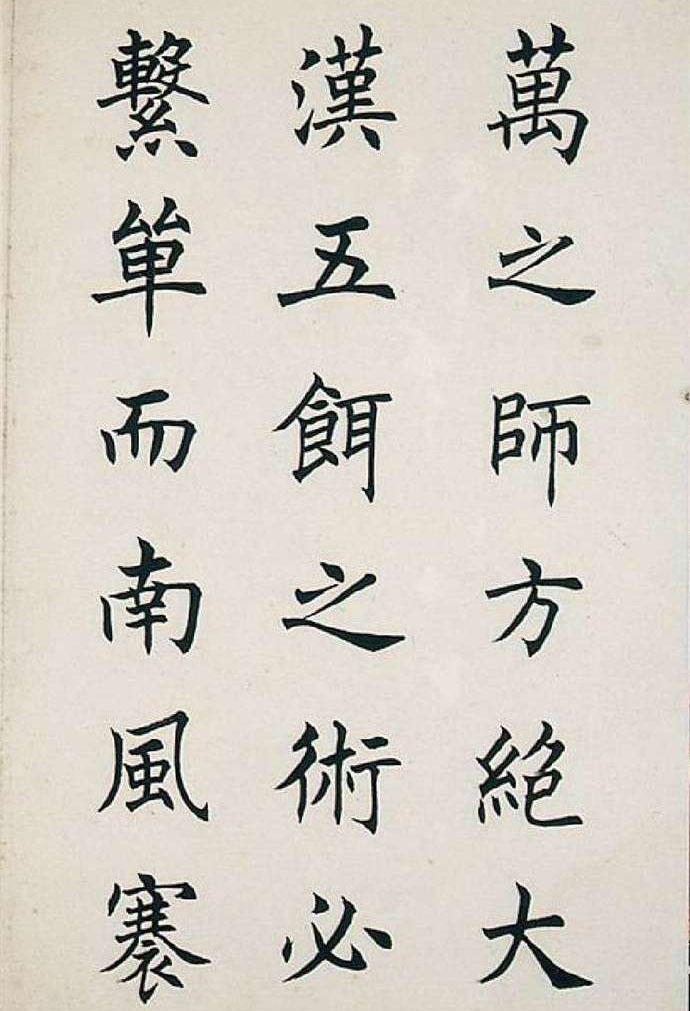 萬之師方絶大
漢五餌之術必
繫單而南風褰